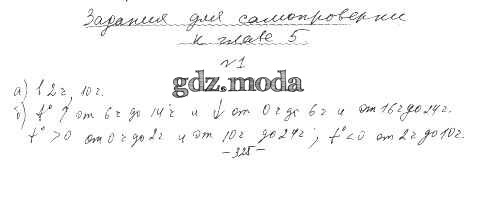 Задания для самопроверки
к главе 5
№1
gdz.moda
а) 2 ч, 10 ч.
б) t° ↑ от 6 ч до 14 ч и ↓ от 0 ч до 6 ч и от 16 ч до 24 ч.
t° > 0 от 0 ч до 2 ч и от 10 ч до 24 ч; t° < 0 от 2 ч до 10 ч.
– 325 –